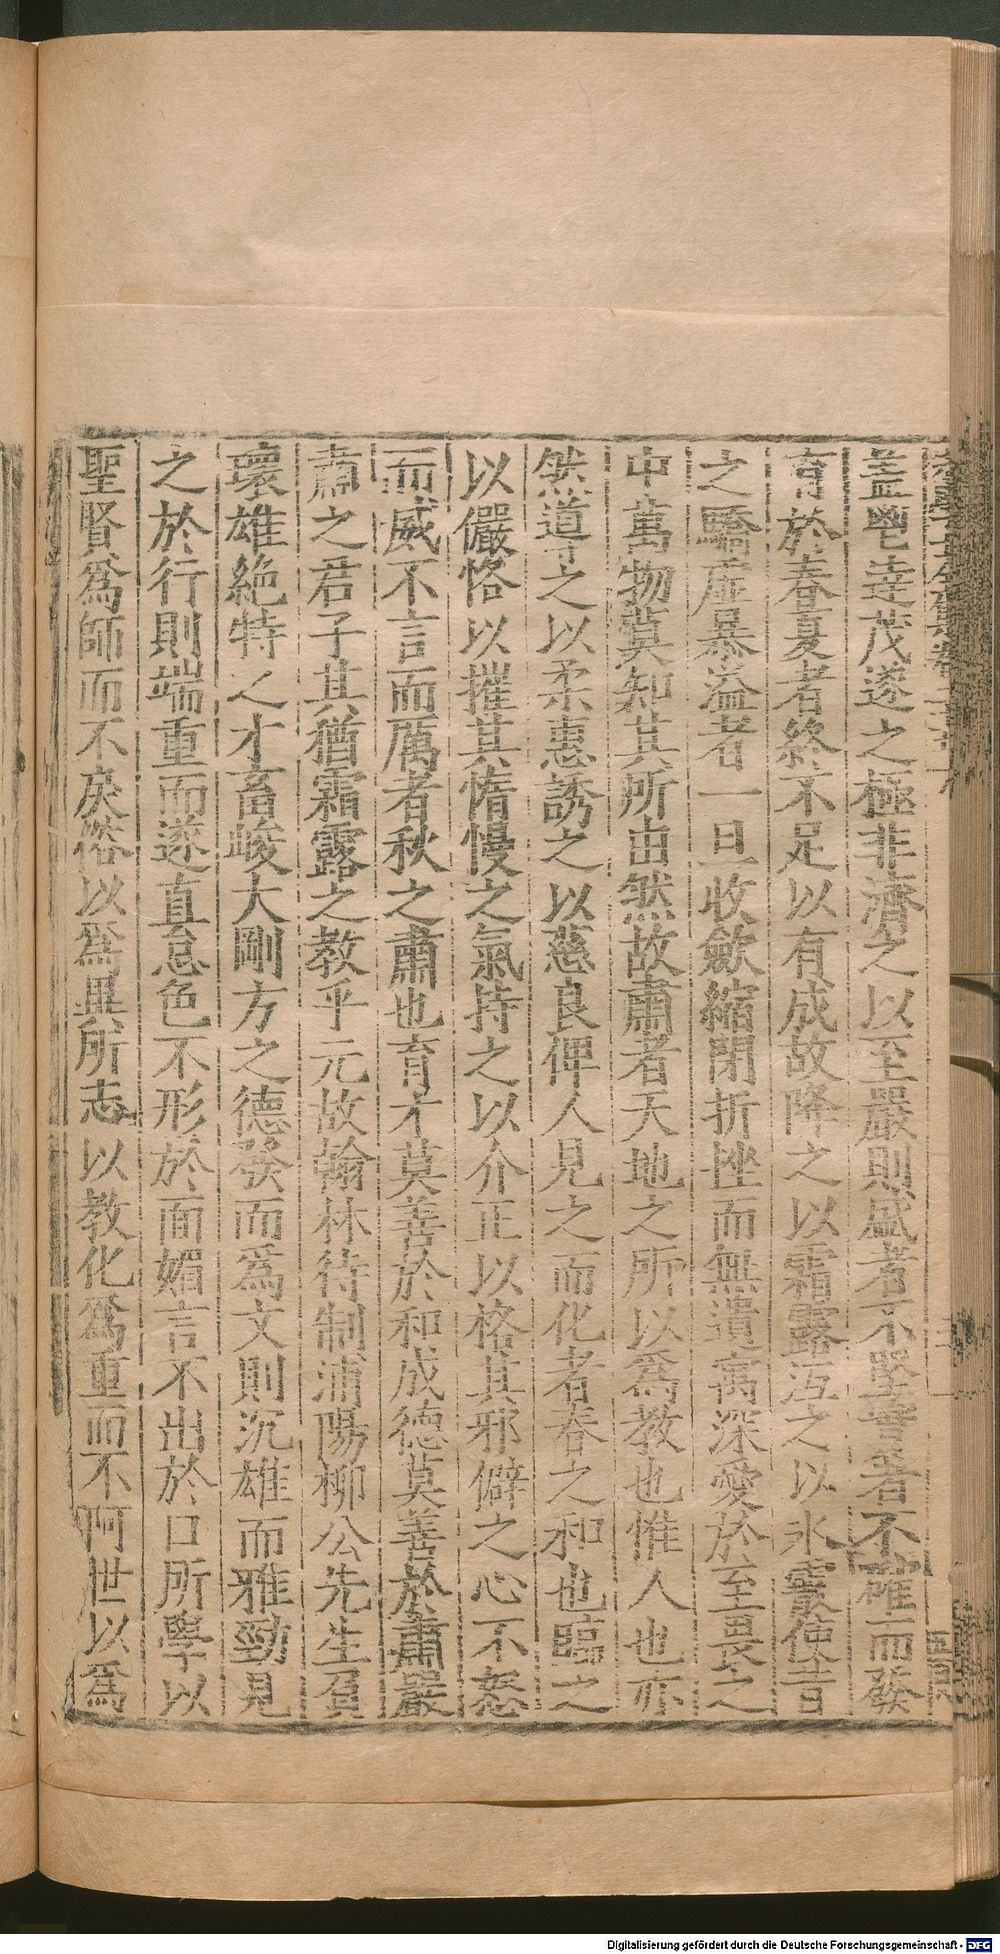 蓋鬯達茂遂之極非濟之以至嚴則盛者不堅實者不確而發
育於春夏者終不足以有成故降之以霜露沍之以氷霰使昔
之驕虐暴溢者一旦收歛縮閉折挫而無遺寓深愛於至畏之
中萬物莫知其所由然故肅者天地之所以爲教也惟人也亦
然道丁之以柔惠誘之以慈良俾人見之而化者春之和也臨之
以儼恪以摧其惰慢之氣持之以介正以格其邪僻之心不怒
而威不言而厲者秋之肅也育才莫善於和成德莫善於肅嚴
肅之君子其猶霜露之教乎元故翰林待制浦陽柳公先生負
瓌雄絶特之才畜峻大剛方之德發而爲文則沉雄而雅勁見
之於行則端重而遂直怠色不形於面媚言不出於口所學以
聖賢爲師而不戾俗以爲異所志以教化爲重而不阿世以爲
Digitalisierung gefördert durch die Deutsche Forschungsgemeinschaft - DFG